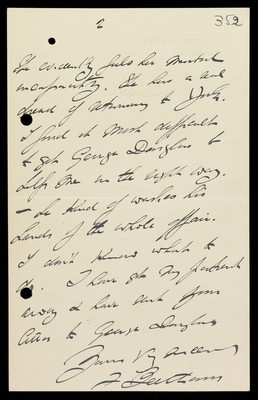 2
352
She evidently feels her mental
incapacity. She has a
dread of returning to
I find it most difficult
to get George Douglas to
help me in the right way.
- he kind of washes his
hands of the whole affair.
I don't know what to
do. I have got my patient
away & have sent your
letter to George Douglas
Yours